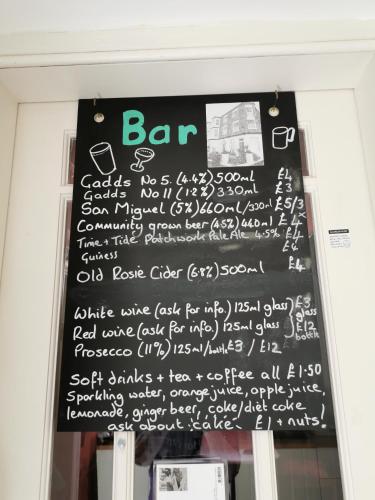 Bar
Gadds No 5. (4.4%) 500ml £4
Gadds No 11 (1.2%) 330ml £3
San Miguel (5%) 660ml/330ml £5/3
Community grown beer (4.5%) 440ml £4
Time + Tide Patchwork Pale Ale 4.5% £4
Guiness £4
Old Rosie Cider (6.8%) 500ml £4
White wine (ask for info.) 125ml glass £3 glass
Red wine (ask for info.) 125ml glass £12 bottle
Prosecco (11%) 125ml/bottle £3 / £12
Soft drinks + tea + coffee all £1.50
Sparkling water, orange juice, apple juice,
lemonade, ginger beer, coke/diet coke
ask about :cake £1 + nuts!